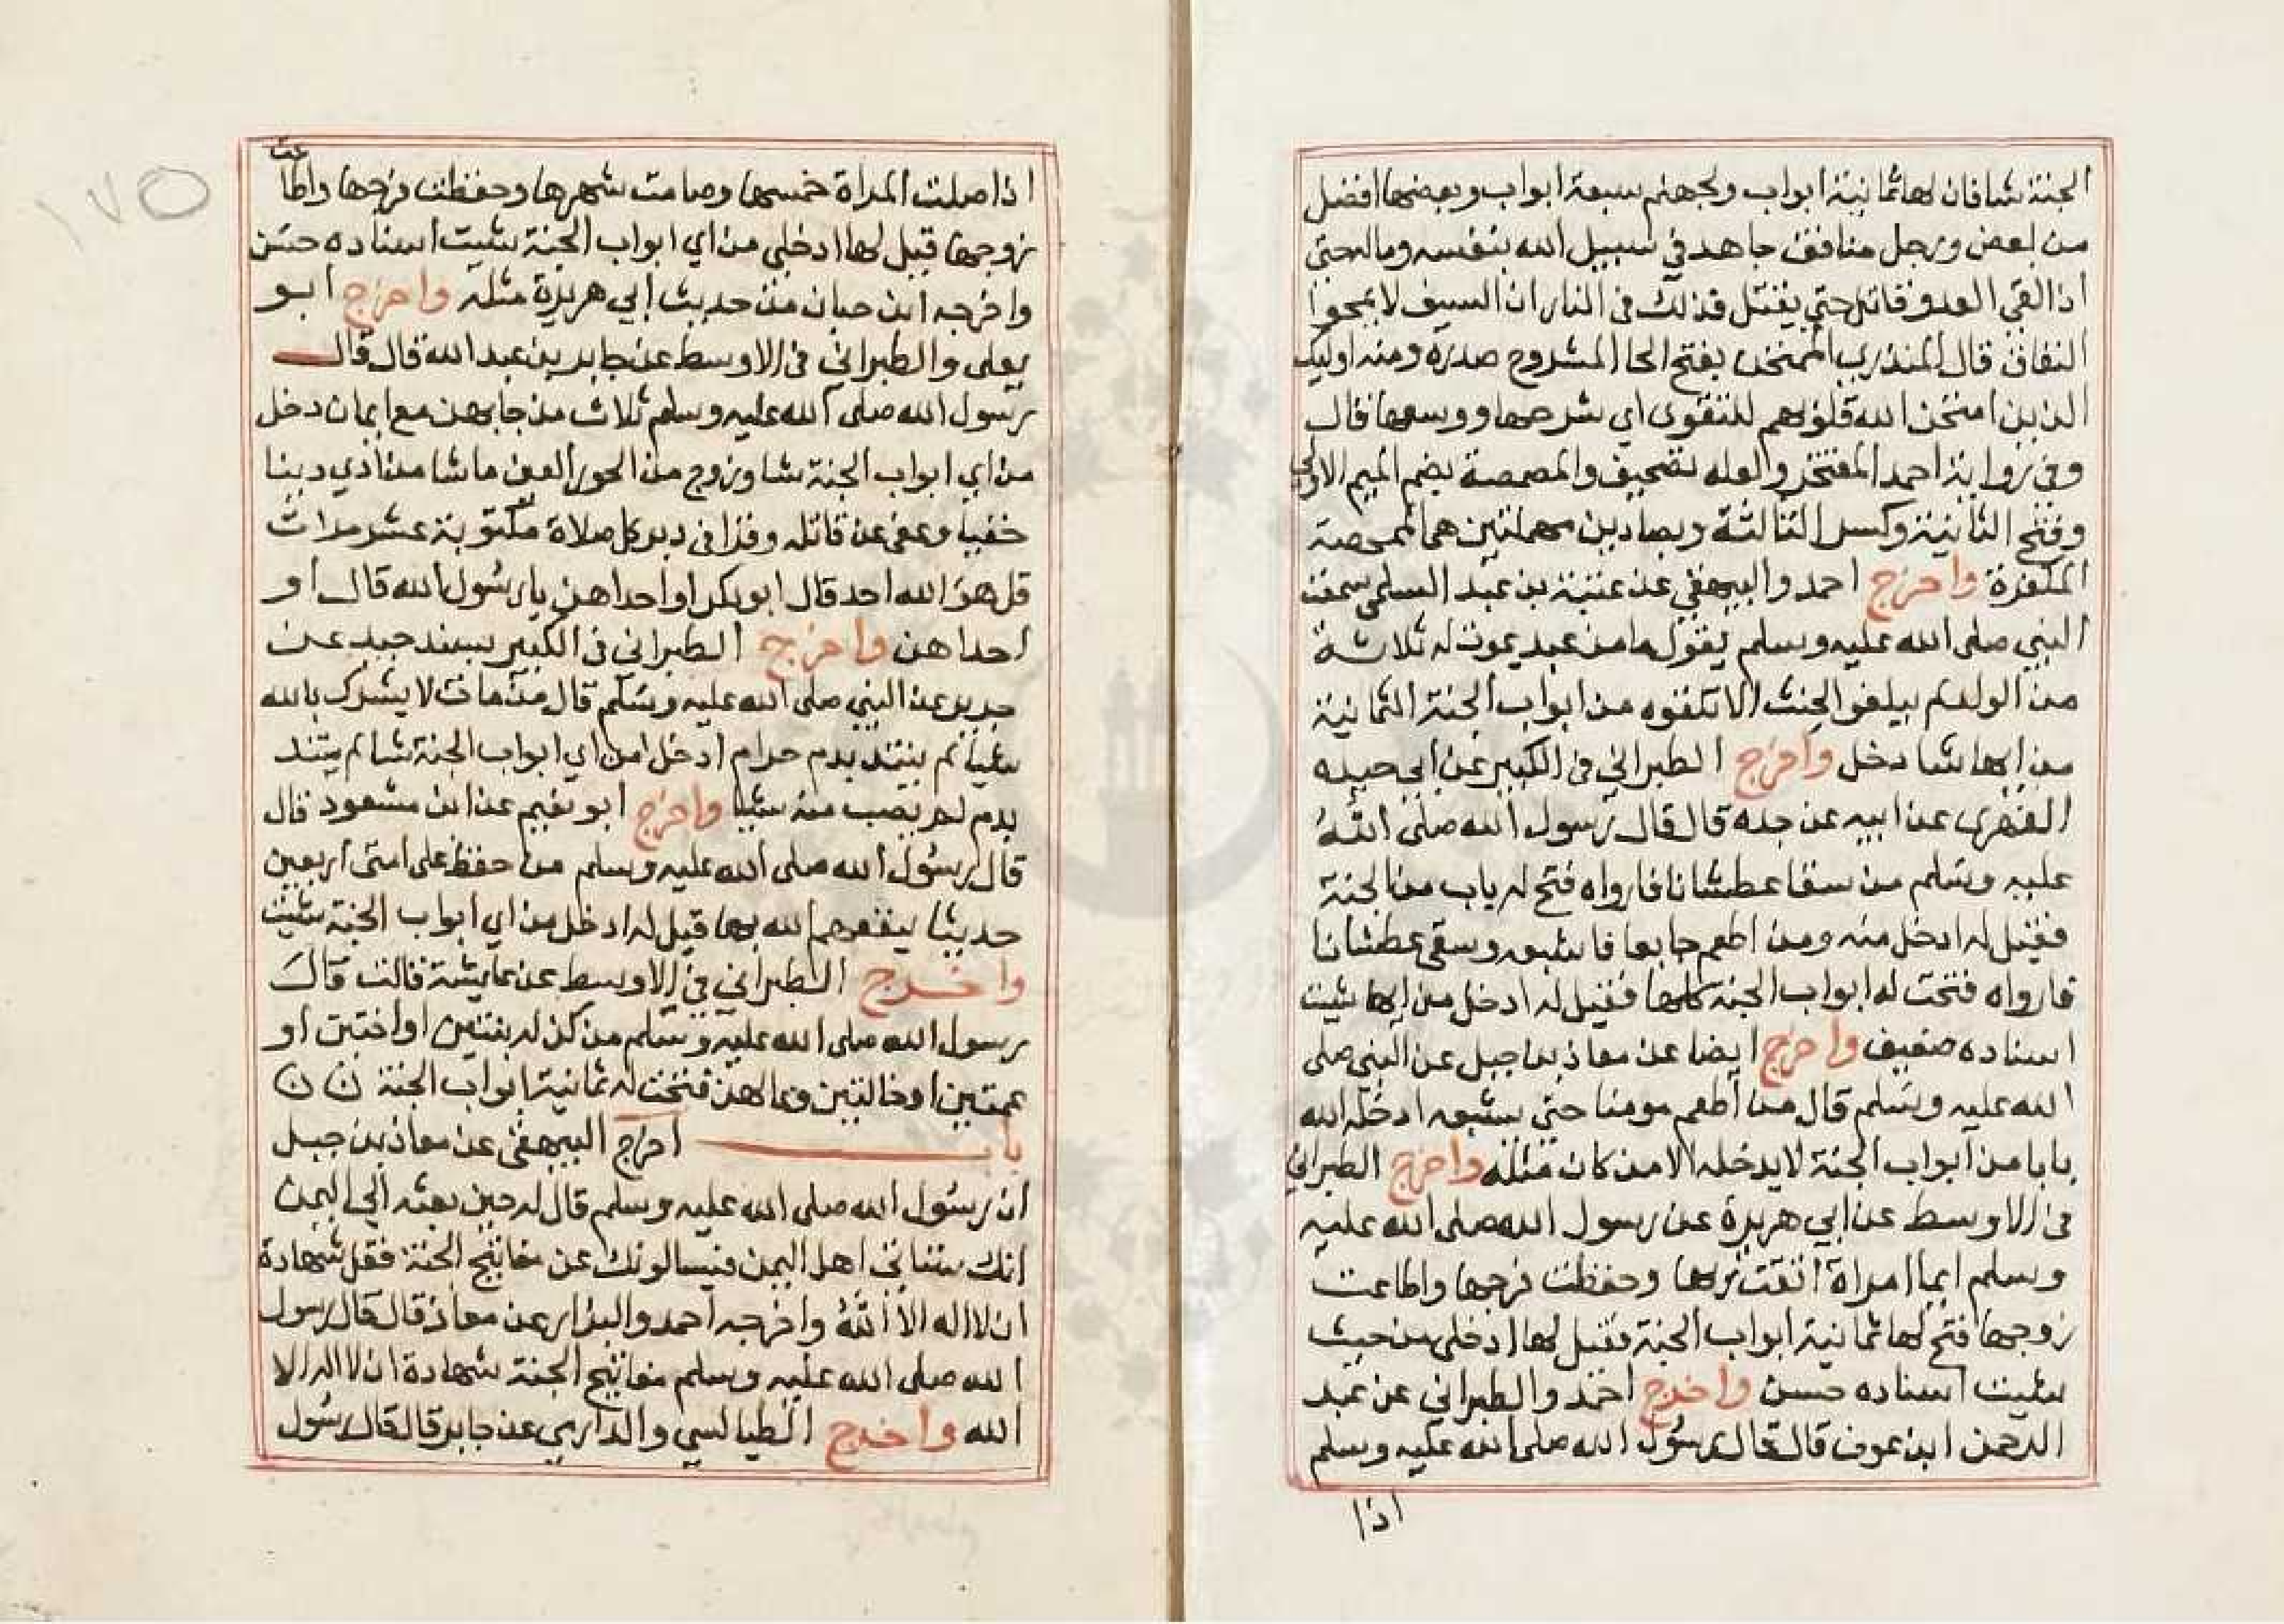 الجنة شا فان لها ثمانية ابواب ولجهنم سبعة ابواب وبعضها افضل
من بعض ورجل منافق جاهد في سبيل الله بنفسه وماله حتى
اذا لقي العدو قاتل حتى يقتل فذلك في النار ان السيف لا يمحوا
النفاق قال المنذري الممتحن بفتح الحا المشروح صدره ومنه اوليك
الذين امتحن الله قلوبهم للتقوى اي شرحها ووسعها قال
وفي رواية احمد المفتخر ولعله تصحيف والمصمصة بضم الميم الاولى
وفتح الثانية وكسر الثالثة وبصادين مهملتين هي الممحصة
المكفرة واخرج احمد والبيهقي عن عتبة بن عبد السلمي سمعت
النبي صلى الله عليه وسلم يقول ما من عبد يموت له ثلاثة
من الولد لم يبلغو الحنث الا تلقوه من ابواب الجنة الثمانية
من ايها شا دخل واخرج الطبراني في الكبير عن ابي حبيله
الفهري عن ابيه عن جده قال قال رسول الله صلى الله
عليه وسلم من سقا عطشانا فارواه فتح له باب من الجنة
فقيل له ادخل منه ومن اطعم جايعا فاشبعه وسقى عطشانا
فارواه فتحت له ابواب الجنة كلها فقيل له ادخل من ايها شيت
اسناده ضعيف واخرج ايضا عن معاذ بن جبل عن النبي صلى
الله عليه وسلم قال من اطعم مومنا حتى يشبعه ادخله الله
بابا من ابواب الجنة لا يدخله الا من كان مثله واخرج الطبراني
في الاوسط عن ابي هريرة عن رسول الله صلى الله عليه
وسلم ايما امراة اتقت ربها وحفظت فرجها واطاعت
زوجها فتح لها ثمانية ابواب الجنة فقيل لها ادخلي من حيث
شيت اسناده حسن واخرج احمد والطبراني عن عبد
الرحمن ابن عوف قال قال رسول الله صلى الله عليه وسلم
اذا
١٧٥
اذا صلت المراة خمسها وصامت شهرها وحفظت فرجها واطاعت
زوجها قيل لها ادخلي من اي ابواب الجنة شيت اسناده حسن
واخرجه ابن حبان من حديث ابي هريرة مثله واخرج ابو
يعلى والطبراني في الاوسط عن جابر بن عبد الله قال قال
رسول الله صلى الله عليه وسلم ثلاث من جا بهن مع ايمان دخل
من اي ابواب الجنة شا وزوج من الحور العين ما شا من ادي دينا
خفيا وعفى عن قاتله وقرا في دبر كل صلاة مكتوبة عشر مرات
قل هو الله احد قال ابو بكر او احداهن يا رسول الله قال او
احداهن واخرج الطبراني في الكبير بسند جيد عن
جرير عن النبي صلى الله عليه وسلم قال من مات لا يشرك بالله
شيا لم يتند بدم حرام ادخل من اي ابواب الجنة شا لم يتند
بدم لم يصب منه شيا واخرج ابو نعيم عن ابن مسعود قال
قال رسول الله صلى الله عليه وسلم من حفظ على امتى اربعين
حديثا ينفعهم الله بها قيل له ادخل من اي ابواب الجنة شيت
واخرج الطبراني في الاوسط عن عايشة قالت قال
رسول الله صلى الله عليه وسلم من كن له بنتين او اختين او
عمتين او خالتين وعالهن فتحت له ثمانية ابواب الجنة ن ن
باب اخرج البيهقي عن معاذ بن جبل
ان رسول الله صلى الله عليه وسلم قال له حين بعثه الى اليمن
انك ستاتي اهل اليمن فيسالونك عن مفاتيح الجنة فقل شهادة
ان لا اله الا الله واخرجه احمد والبزار عن معاذ قال قال رسول
الله صلى الله عليه وسلم مفاتيح الجنة شهادة ان لا اله الا
الله واخرج الطيالسي والدارمي عن جابر قال قال رسول